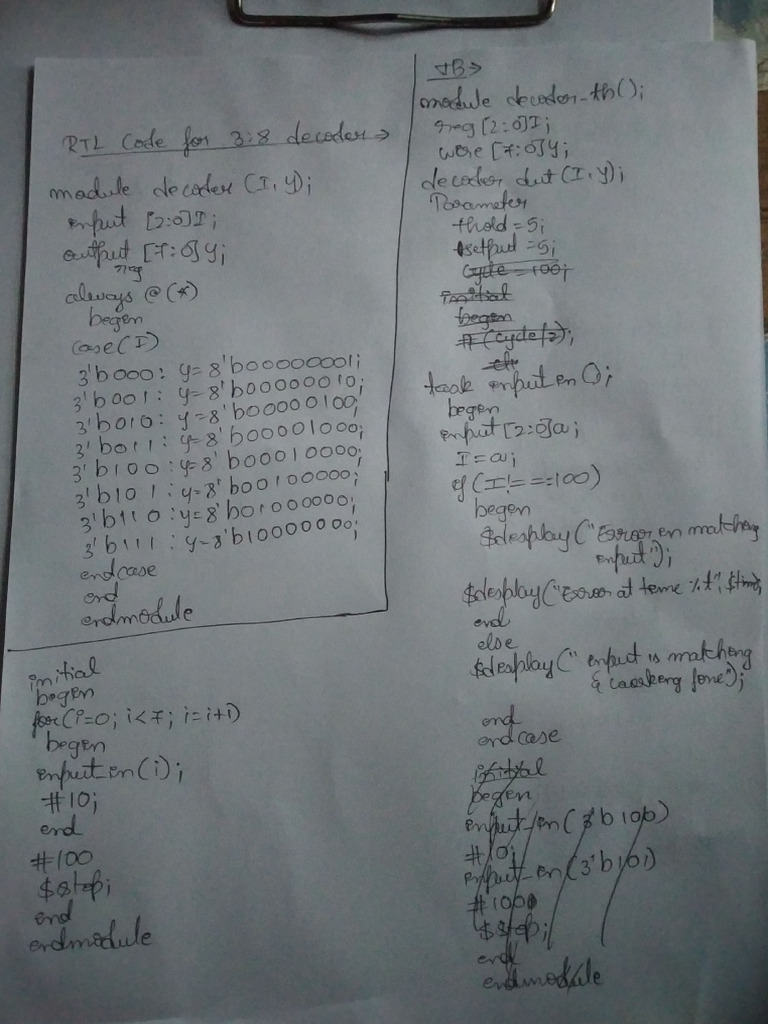 RTL Code for 3:8 decoder →
module decoder (I, y);
input [2:0]I;
output [7:0]y;
reg
always @ (*)
begin
case(I)
3'b000: y=8'b000000001;
3'b001: y=8'b00000010;
3'b010: y=8'b000000100;
3'b011: y=8'b000001000;
3'b100: y=8'b000010000;
3'b101: y=8'b00100000;
3'b110: y=8'b01000000;
3'b111: y=8'b10000000;
endcase
end
endmodule
TB→
module decoder_tb();
reg [2:0]I;
wire [7:0]y;
decoder dut (I, y);
Parameter
thold = 5;
tsetpud = 5;
cycle = 100;
initial
begin
#(cycle/2);
clk
task input_in ();
begin
input [2:0]a;
I = a;
if (I!===100)
begin
$display("Error in matching
input");
$display("Error at time %t", $time,
end
else
$display(" input is matching
& working fine");
end
endcase
initial
begin
input_in(3'b100)
#10;
input_in(3'b101)
#1000
$stop;
end
endmodule
initial
begin
for(i=0; i<7; i=i+1)
begin
input_in(i);
#10;
end
#100
$stop;
end
endmodule